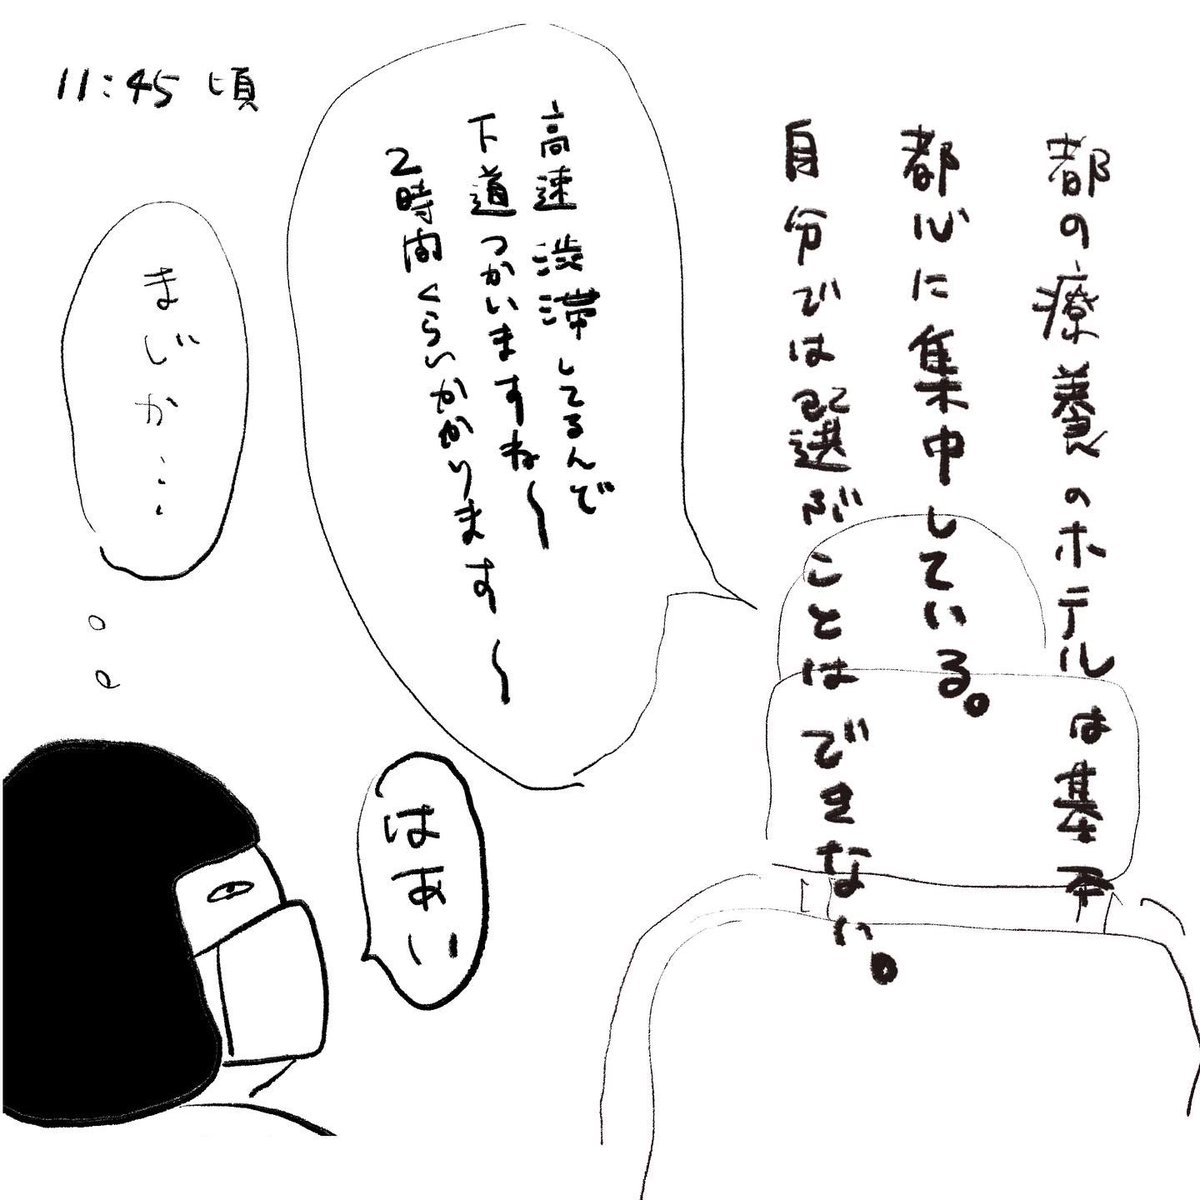 11:45頃
都の療養のホテルは基本
都心に集中している。
自分では選ぶことはできない。
高速渋滞してるんで
下道つかいますね〜
2時間くらいかかります〜
はあい
まじか…